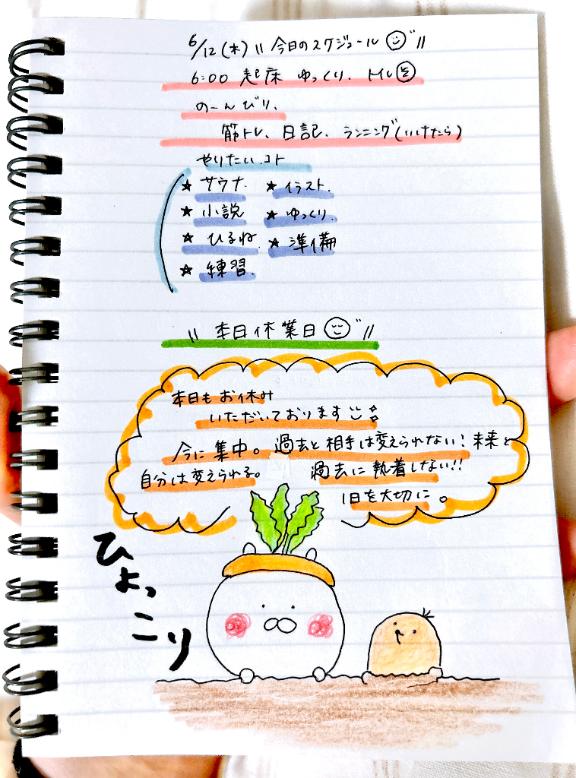 6/12(木) " 今日のスケジュール "
6:00 起床 ゆっくり、トイレ
のーんびり、
筋トレ、日記、ランニング(いけたら)
やりたいコト
★ サウナ ★ イラスト
★ 小説 ★ ゆっくり
★ ひるね ★ 準備
★ 練習
" 本日休業日 "
本日もお休み
いただいております
今に集中。過去と相手は変えられない！未来と
自分は変えられる。 過去に執着しない!!
1日を大切に。
ひょっこり